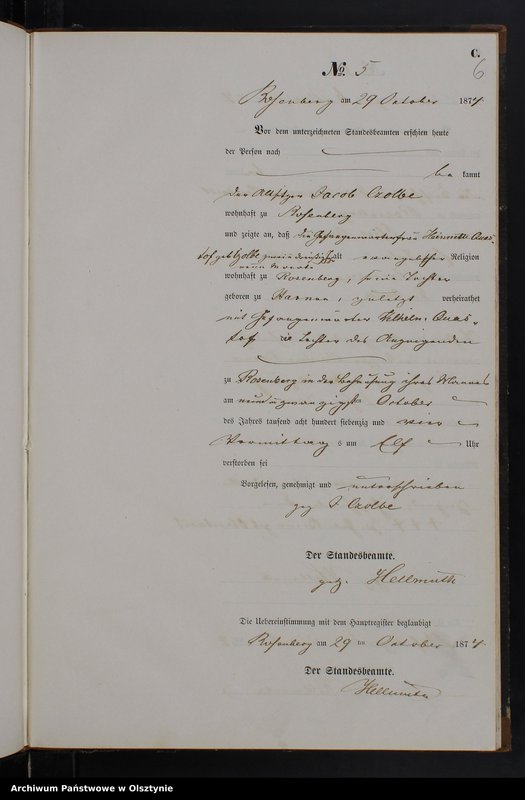 C.
6
No. 5
Rosenberg am 29 October 1874
Vor dem unterzeichneten Standesbeamten erschien heute
der Person nach
be kannt
der Altsitzer Jacob Czolbe
wohnhaft zu Rosenberg
und zeigte an, daß die Gefangenwärterfrau Henriette Quas-
tof geb Czolbe zwei u dreißig J alt evangelischer Religion
neun Monate
wohnhaft zu Rosenberg, seine Tochter
geboren zu zuletzt verheirathet
mit Gefangenwärter Wilhelm Quas-
tof die Tochter des Anzeigenden
zu Rosenberg in der Behausung ihres Mannes
am neun u zwanzigsten October
des Jahres tausend acht hundert siebenzig und vier
Vormittag s um Elf Uhr
verstorben sei
Vorgelesen, genehmigt und unterschrieben
gez J Czolbe
Der Standesbeamte.
gez. Hellmuth
Die Uebereinstimmung mit dem Hauptregister beglaubigt
Rosenberg am 29 ten October 1874
Der Standesbeamte.
Hellmuth
Archiwum Państwowe w Olsztynie